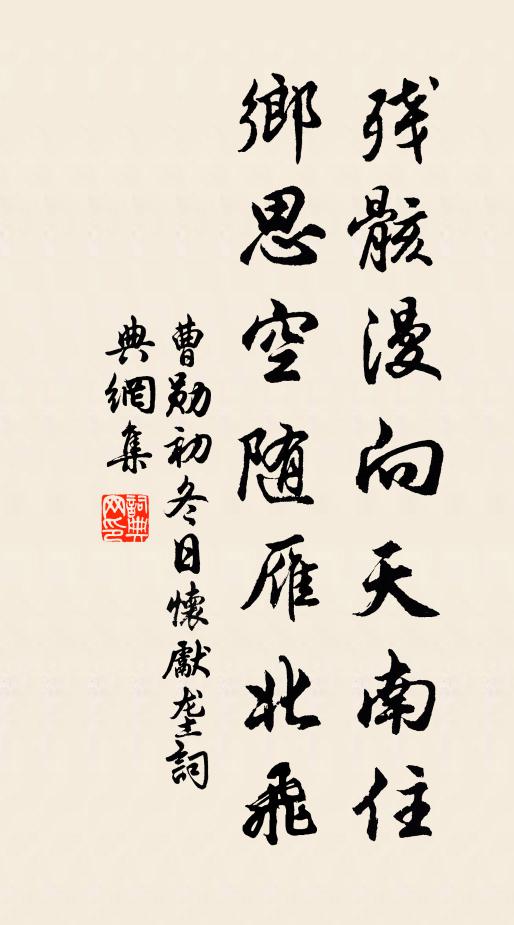 残骸漫向天南住
鄉思空随雁北飛
曹勛初冬日懷獻垄詞
典網集
詞典網印